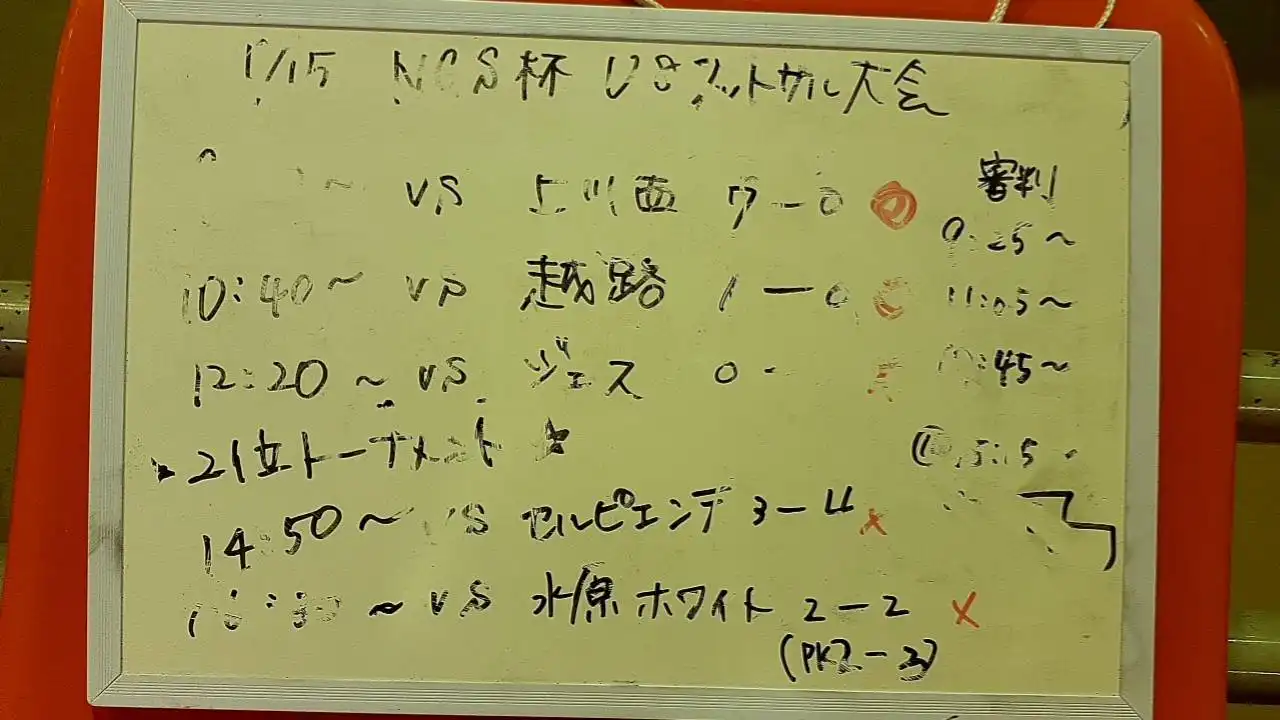 1/15 NCS杯 U8フットサル大会
審判
~ vs 上川西 7-0
9:25~
10:40~ vs 越路 1-0
11:05~
12:20~ vs ジェス 0-
:45~
2位トーナメント
14:50~ vs セルピエンテ 3-4 ×
~ vs 水原ホワイト 2-2 ×
(PK2-3)